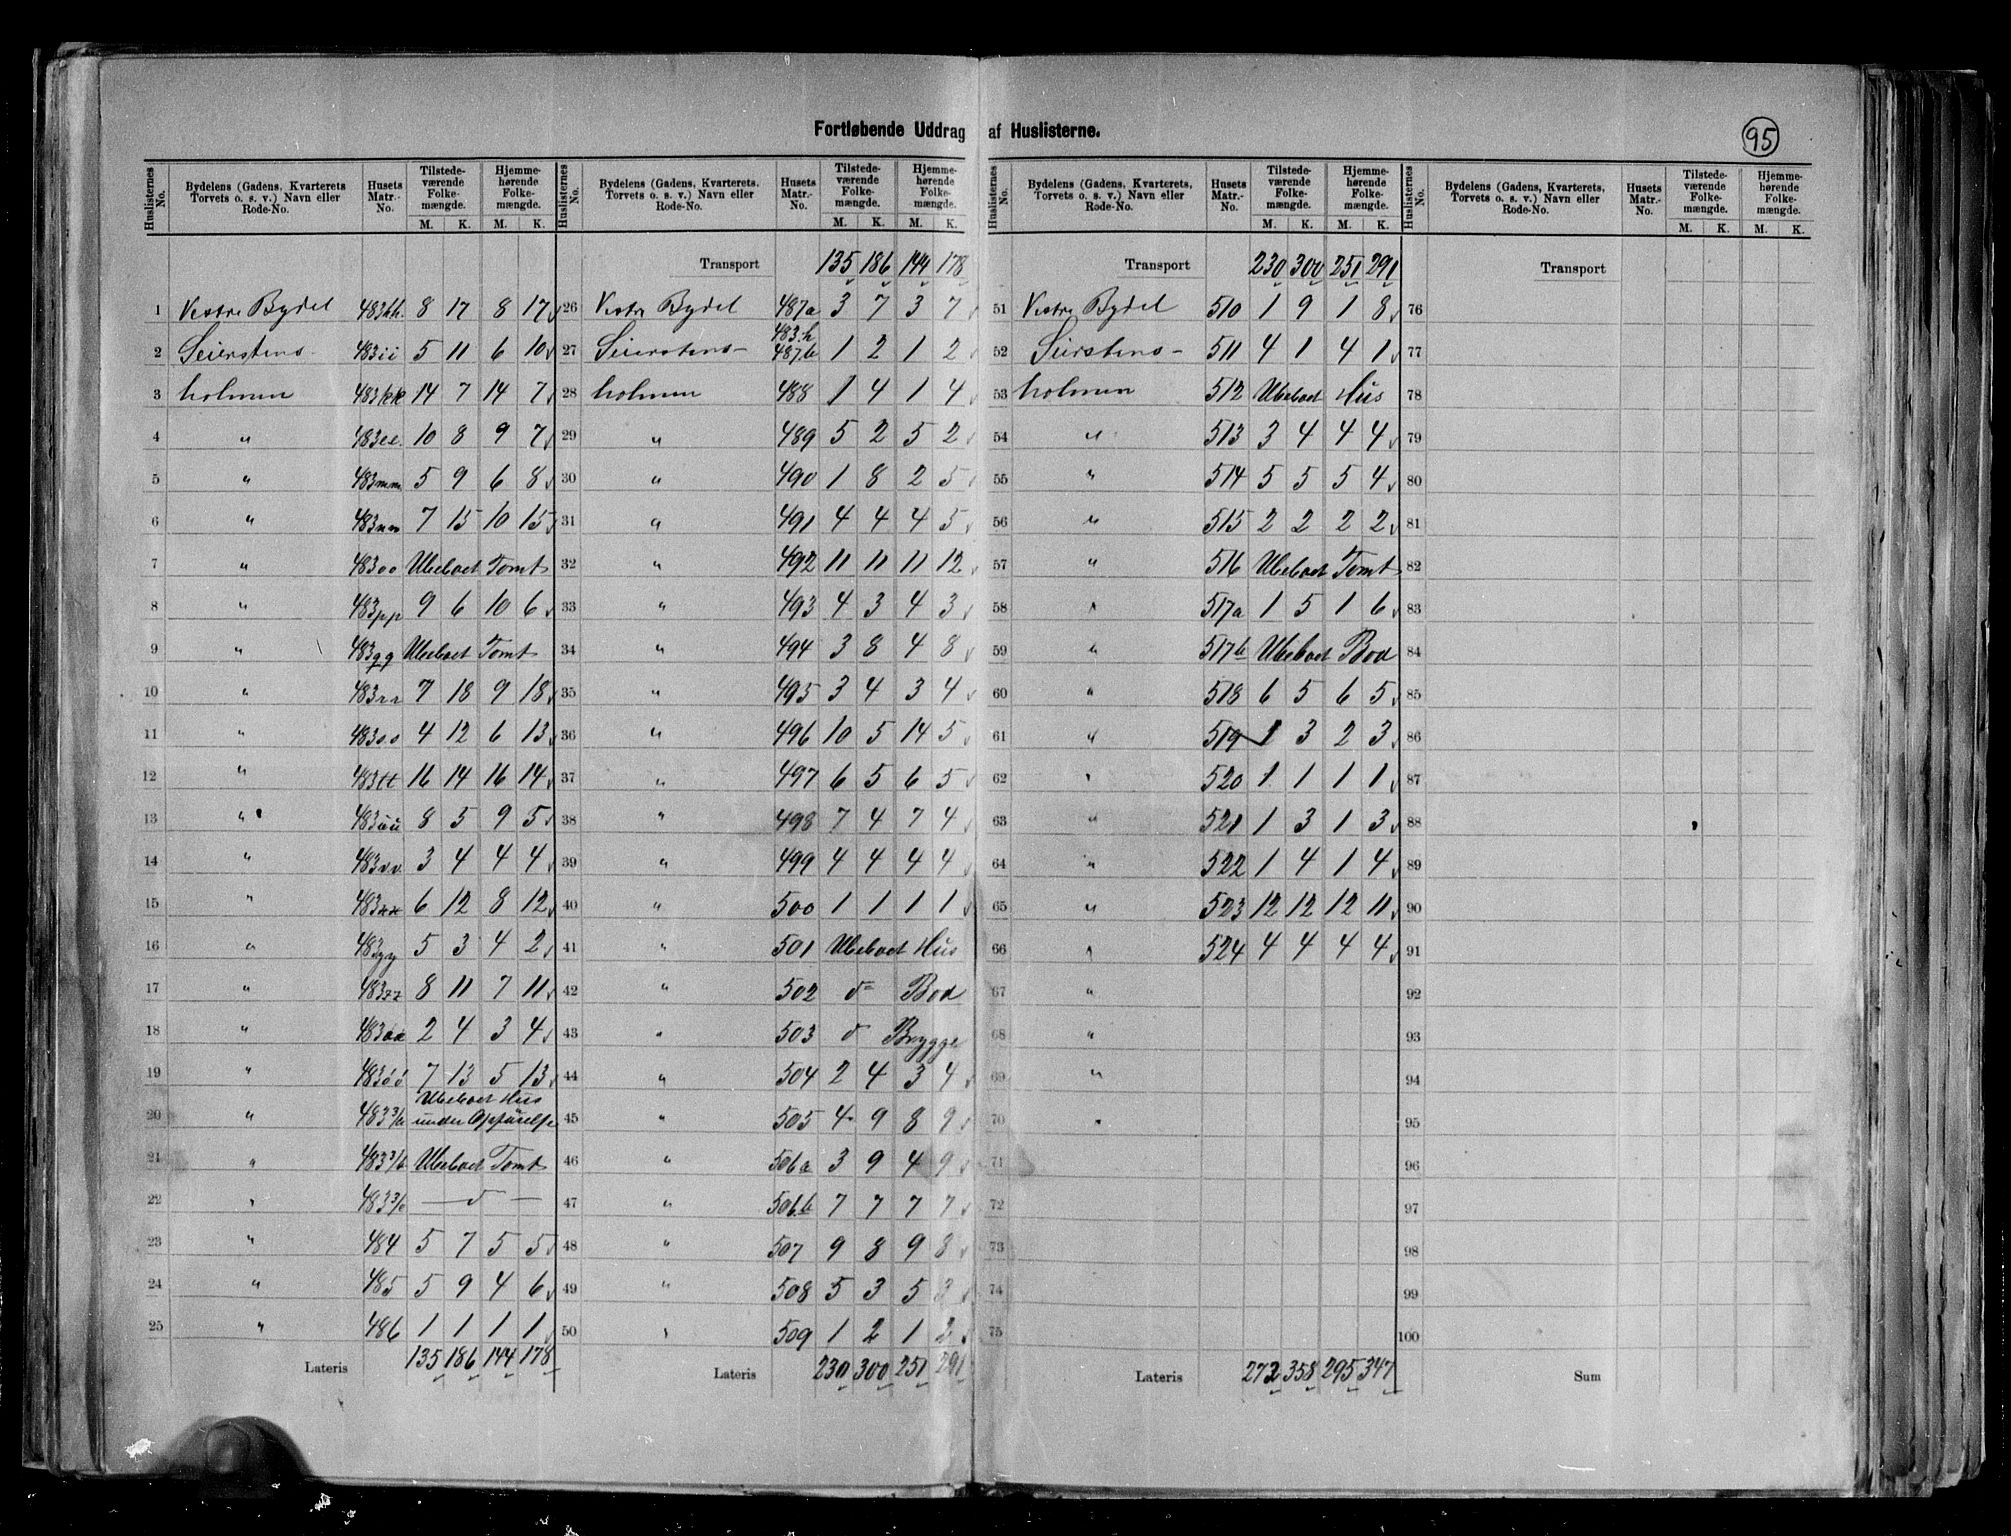 Fortløbende Uddrag af Huslisterne.
95
Huslisternes No. | Bydelens (Gadens, Kvarterets, Torvets o. s. v.) Navn eller Rode-No. | Husets Matr.-No. | Tilstedeværende Folkemængde. M. K. | Hjemmehørende Folkemængde. M. K.
1 Vestre Bydel 483hh. 8 17 8 17
2 Seierstens- 483ii 5 11 6 10
3 holmen 483kk 14 7 14 7
4 " 483ll. 10 8 9 7
5 " 483mm 5 9 6 8
6 " 483nn 7 15 10 15
7 " 483oo Ubeboet Tomt
8 " 483pp 9 6 10 6
9 " 483qq Ubeboet Tomt
10 " 483rr 7 18 9 18
11 " 483ss 4 12 6 13
12 " 483tt 16 14 16 14
13 " 483uu 8 5 9 5
14 " 483vv. 3 4 4 4
15 " 483xx 6 12 8 12
16 " 483yy 5 3 4 2
17 " 483zz 8 11 7 11
18 " 483 2 4 3 4
19 " 483 7 13 5 13
20 " 483 3/a Ubeboet Hus
under Opførelse
21 " 483 3/b Ubeboet Tomt
22 " 483 3/c — d —
23 " 484 5 7 5 5
24 " 485 5 9 4 6
25 " 486 1 1 1 1
Lateris 135 186 144 178
Huslisternes No. | Bydelens (Gadens, Kvarterets, Torvets o. s. v.) Navn eller Rode-No. | Husets Matr.-No. | Tilstedeværende Folkemængde. M. K. | Hjemmehørende Folkemængde. M. K.
Transport 135 186 144 178
26 Vestre Bydel 487a 3 7 3 7
483.h
27 Seierstens- 487.b 1 2 1 2
28 holmen 488 1 4 1 4
29 " 489 5 2 5 2
30 " 490 1 8 2 5
31 " 491 4 4 4 5
32 " 492 11 11 11 12
33 " 493 4 3 4 3
34 " 494 3 8 4 8
35 " 495 3 4 3 4
36 " 496 10 5 14 5
37 " 497 6 5 6 5
38 " 498 7 4 7 4
39 " 499 4 4 4 4
40 " 500 1 1 1 1
41 " 501 Ubeboet Hus
42 " 502 do Bod
43 " 503 d Brygge
44 " 504 2 4 3 4
45 " 505 4 9 8 9
46 " 506a 3 9 4 9
47 " 506.b 7 7 7 7
48 " 507 9 8 9 8
49 " 508 5 3 5 3
50 " 509 1 2 1 2
Lateris 230 300 251 291
Huslisternes No. | Bydelens (Gadens, Kvarterets, Torvets o. s. v.) Navn eller Rode-No. | Husets Matr.-No. | Tilstedeværende Folkemængde. M. K. | Hjemmehørende Folkemængde. M. K.
Transport 230 300 251 291
51 Vestre Bydel 510 1 9 1 8
52 Seierstens- 511 4 1 4 1
53 holmen 512 Ubeboet Hus
54 " 513 3 4 4 4
55 " 514 5 5 5 4
56 " 515 2 2 2 2
57 " 516 Ubeboet Tomt
58 " 517a 1 5 1 6
59 " 517b Ubeboet Bod
60 " 518 6 5 6 5
61 " 519 1 3 2 3
62 " 520 1 1 1 1
63 " 521 1 3 1 3
64 " 522 1 4 1 4
65 " 523 12 12 12 11
66 " 524 4 4 4 4
67 "
68 "
69 "
70 "
71
72
73
74
75
Lateris 272 358 295 347
Huslisternes No. | Bydelens (Gadens, Kvarterets, Torvets o. s. v.) Navn eller Rode-No. | Husets Matr.-No. | Tilstedeværende Folkemængde. M. K. | Hjemmehørende Folkemængde. M. K.
Transport
76
77
78
79
80
81
82
83
84
85
86
87
88
89
90
91
92
93
94
95
96
97
98
99
100
Sum